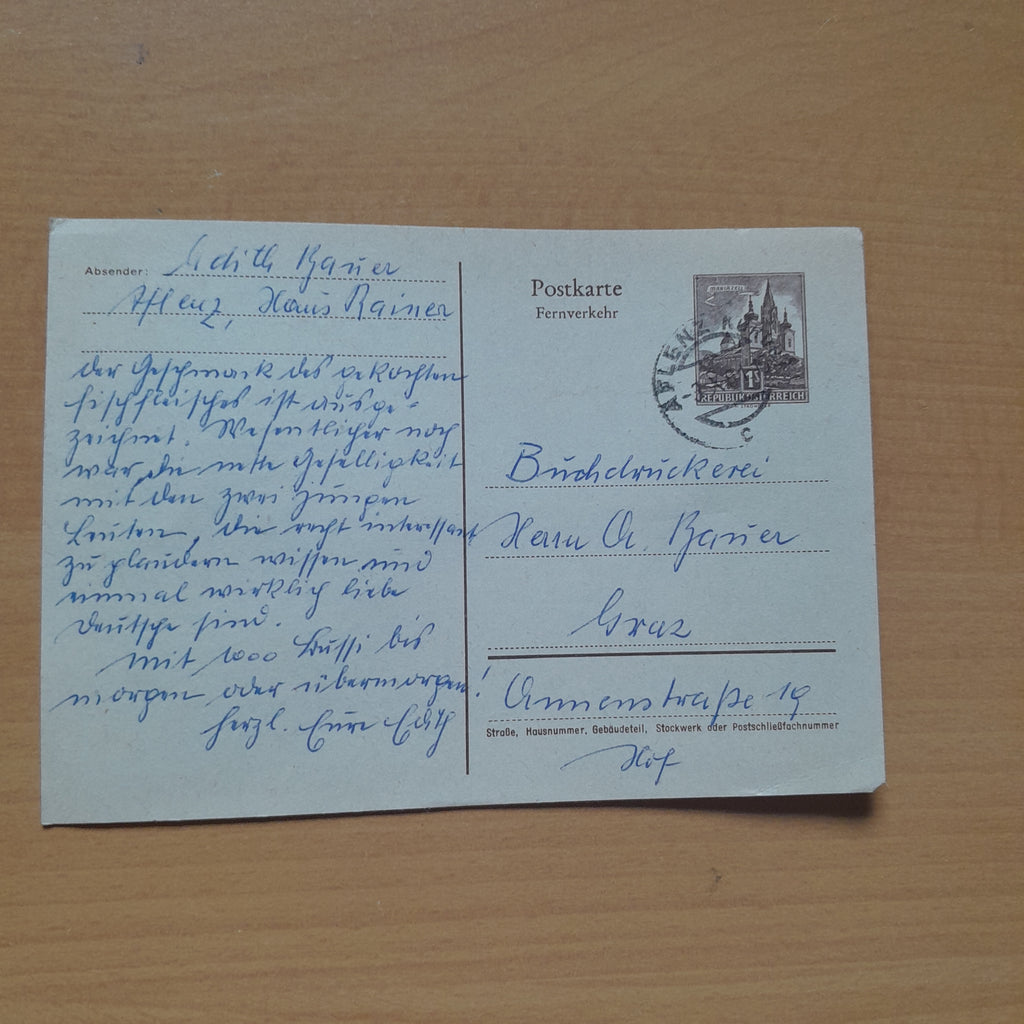 Absender: Edith Bauer
Aflenz, Haus Rainer
der Geschmack des gekochten
Fischfleisches ist ausge-
zeichnet. Wesentlicher noch
war die nette Geselligkeit
mit den zwei jungen
Leuten, die recht interessant
zu plaudern wissen und
einmal wirklich liebe
Deutsche sind.
Mit 1000 Bussi bis
morgen oder übermorgen!
herzl. Eure Edith
Postkarte
Fernverkehr
MARIAZELL
1S
REPUBLIK ÖSTERREICH
AFLENZ K
c
Buchdruckerei
Herrn A. Bauer
Graz
Annenstraße 19
Straße, Hausnummer, Gebäudeteil, Stockwerk oder Postschließfachnummer
Hof